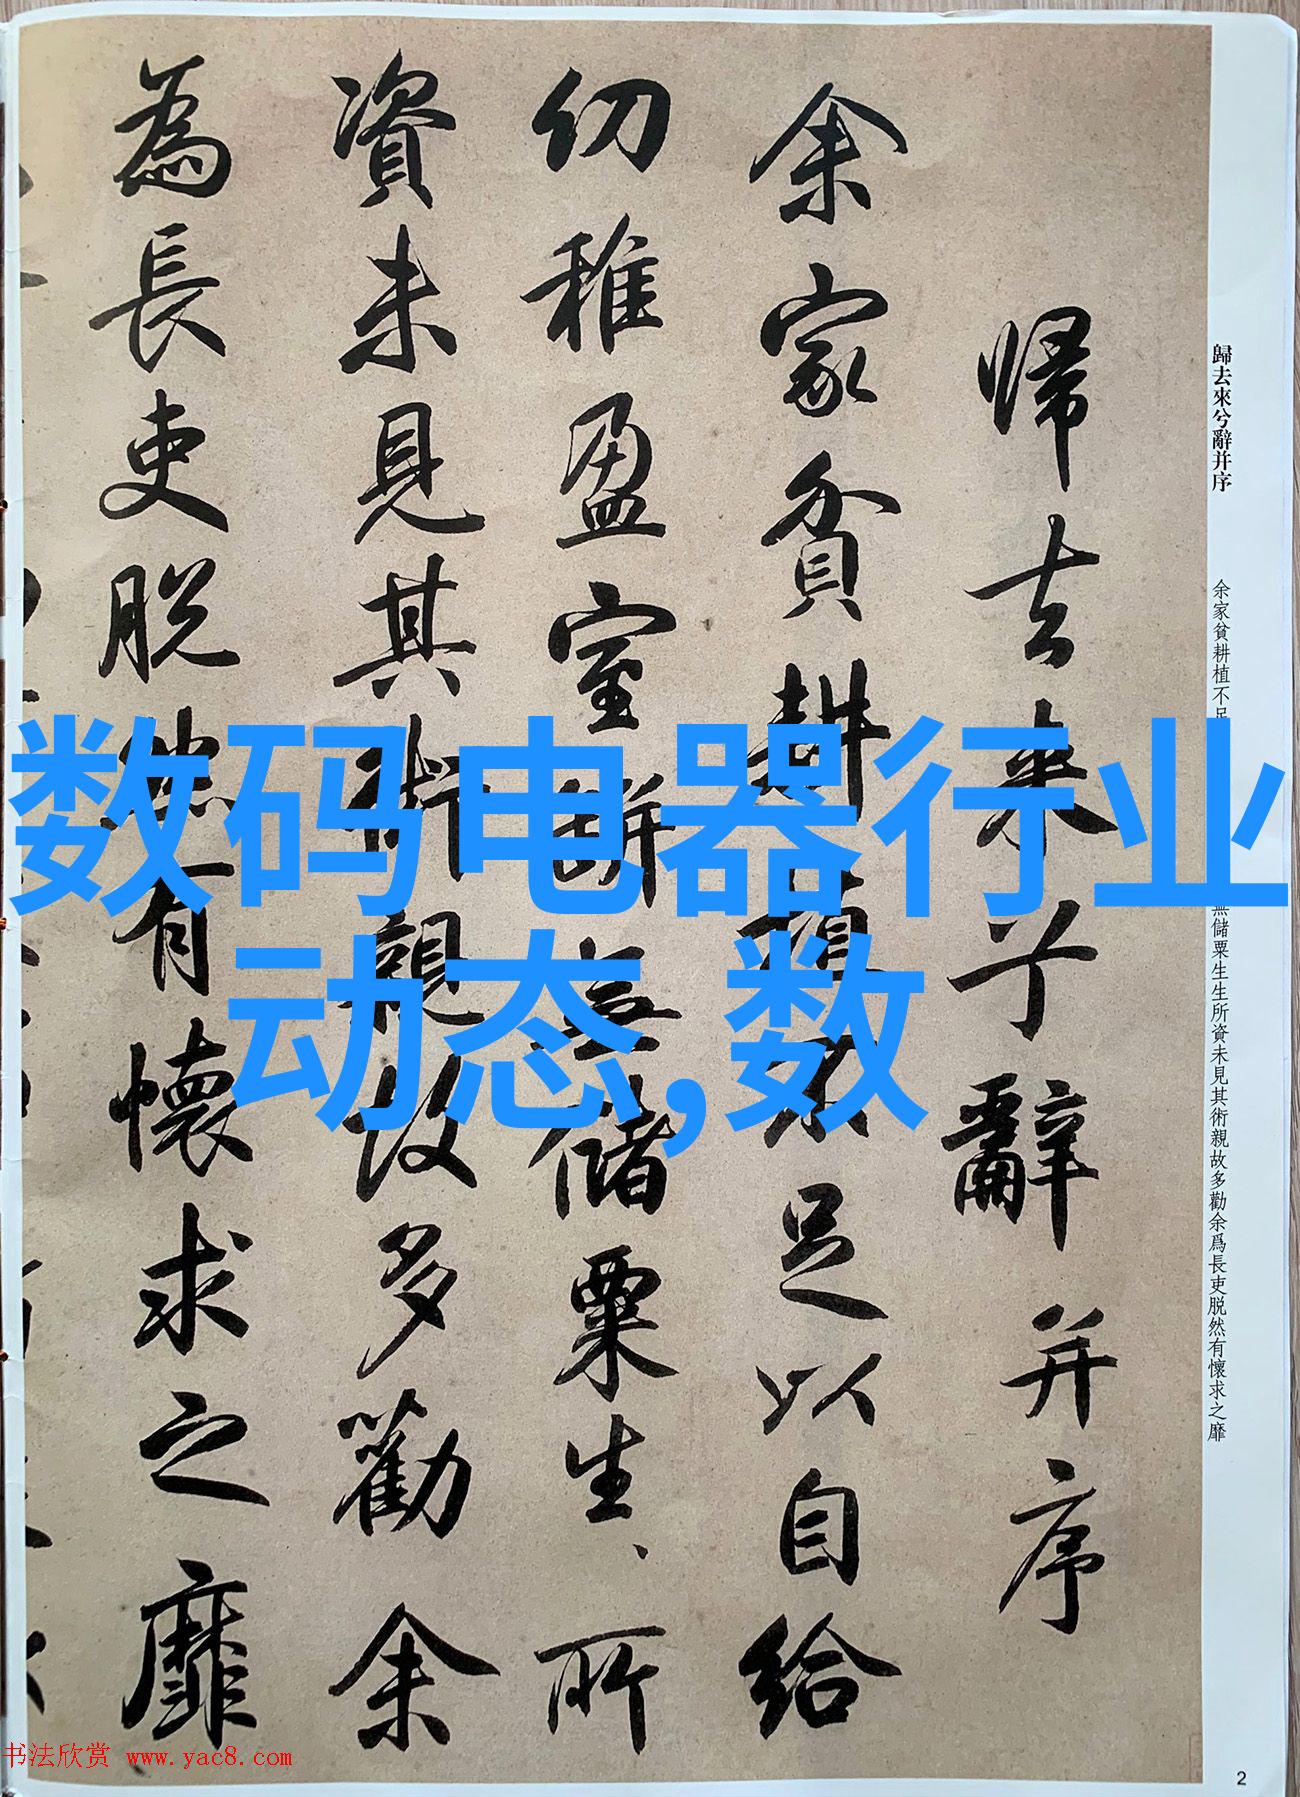 歸去来兮辭并序
余家貧耕植不足以自給
幼稚盈室缾無儲粟生、所
資未見其術親故多勸余
為長吏脱然有懷求之靡
歸去來兮辭并序
余家貧耕植不足
無儲粟生生所資未見其術親故多勸余爲長吏脱然有懷求之靡
数码电器行业
动态,数
书法欣赏 www.yac8.com
2